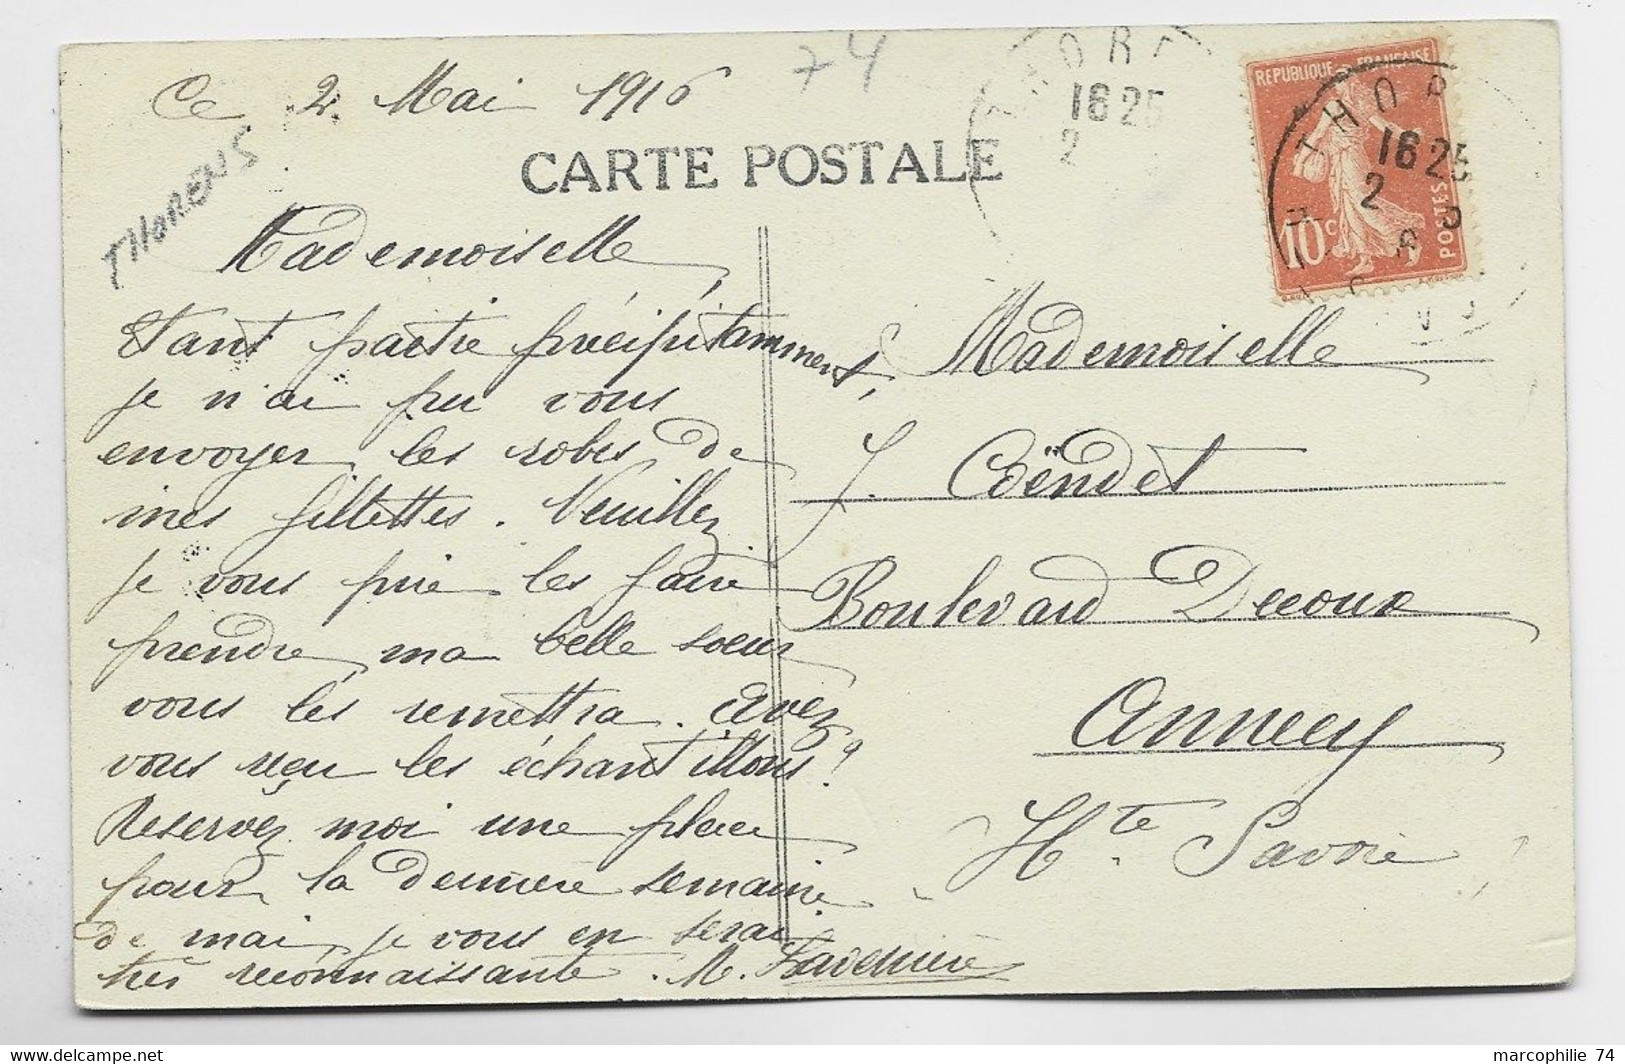 Ce 2 Mai 1916
74
THORENS
CARTE POSTALE
THOR
16 25
2
REPUBLIQUE FRANÇAISE
THOR
16 25
2
10c
POSTES
Mademoiselle,
Etant partie précipitamment,
je n'ai pu vous
envoyer les robes de
mes fillettes. Veuillez
je vous prie les faire
prendre, ma belle soeur
vous les remettra. Avez
vous reçu les échantillons?
Reservez moi une place
pour la dernière semaine
de mai, je vous en serai
très reconnaissante. M. Laverrière
Mademoiselle
J. Coëndet
Boulevard Decoux
Annecy
Hte Savoie
marcophilie 74